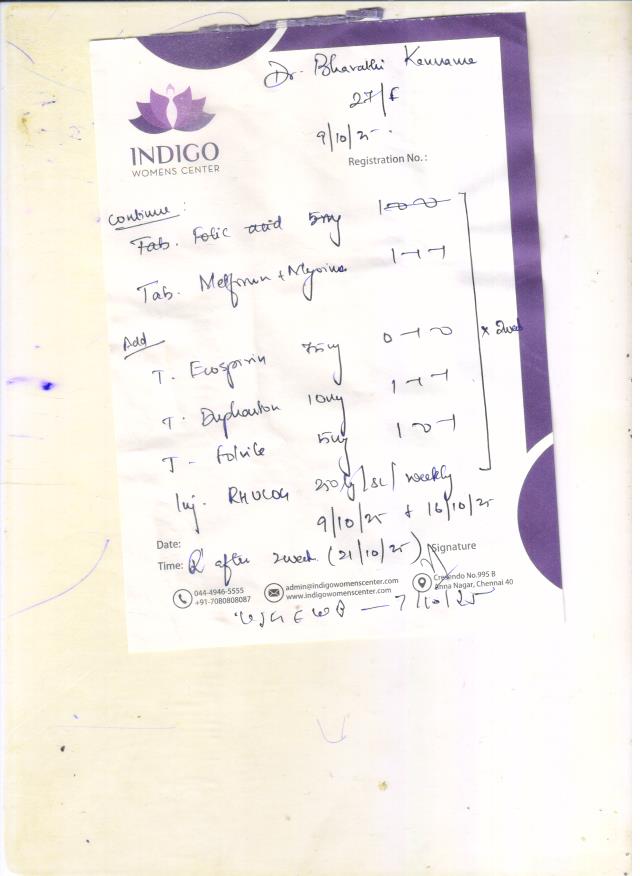 Dr. Bharathi
27/F
9/10/25
INDIGO
WOMENS CENTER
Registration No.:
Continue:
Tab. Folic acid 5mg
Tab. Metformin + Myoino 1-1-1
Add
T. Ecosprin 75mg 0-1-0
T. Duphaston 10mg 1-1-1
T. Folvite 5mg 1-0-1
x 2week
Inj. 250 / / weekly
9/10/25 + 16/10/25
Date:
Time: R after 2week (21/10/25) Signature
044-4946-5555
+91-7080808087
admin@indigowomenscenter.com
www.indigowomenscenter.com
Crescendo No.995 B
Anna Nagar, Chennai 40
7/10/25